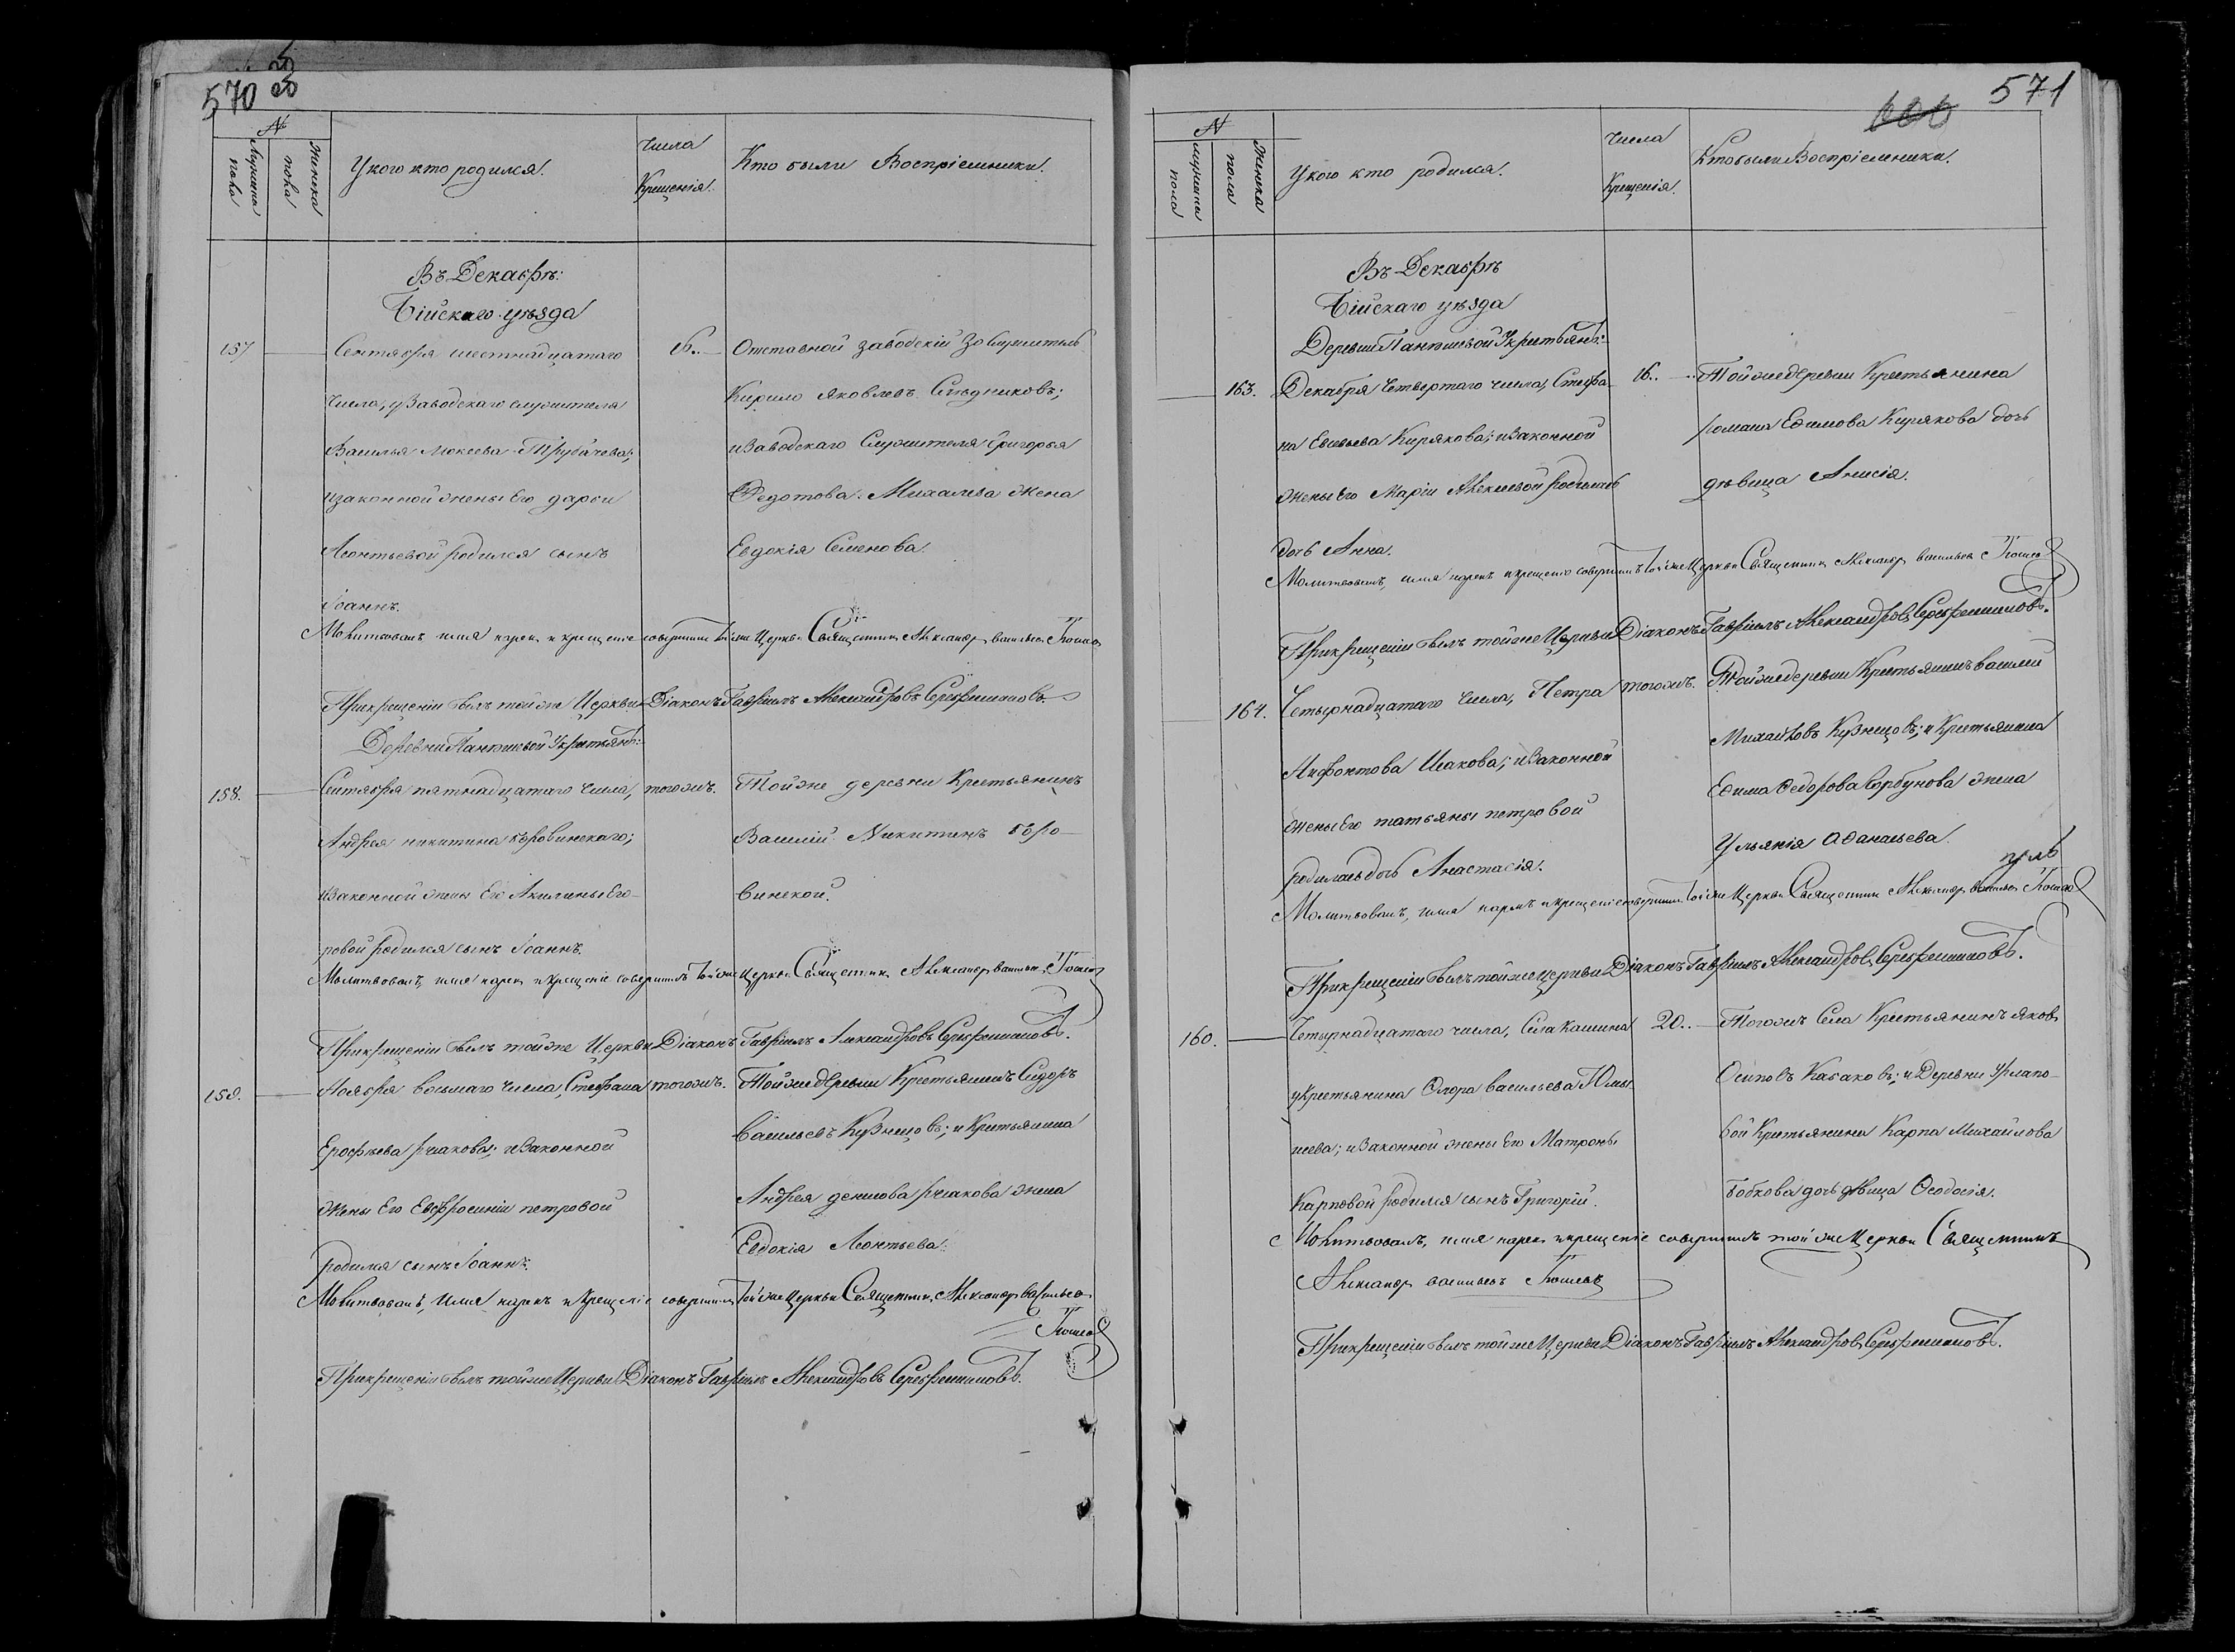 570
№
Мужеска пола
Женска пола
У кого кто родился.
Числа Крещенія.
Кто были Воспріемники.
Въ Декабрѣ:
Бійскаго уѣзда
157 Сентября шестнадцатаго
числа, у Заводскаго служителя
Василья Мокеева Трубачева;
и законной жены Его дарьи
Леонтьевой родился сынъ
Іоаннъ.
16.. Отставной заводскій служитель
Кирило Яковлевъ Слѣдниковъ;
и Заводскаго Служителя Григорья
Федотова Михалева жена
Евдокія Семенова.
Молитвовалъ имя нарекъ и крещеніе совершилъ той же Церкви Священникъ Александръ Васильевъ
При крещеніи былъ той же Церкви Діаконъ Гавріилъ Александровъ Серебренниковъ.
Деревни Пантюшевой У крестьянъ:
158. Сентября пятнадцатаго числа,
Андрея никитина боровинскаго;
и Законной жены Его Акилины Его-
ровой родился сынъ Іоаннъ.
тогожъ. Той же деревни Крестьянинъ
Василій Никитинъ Боро-
винской.
Молитвовалъ, имя нарекъ и крещеніе совершилъ той же Церкви Священникъ Александръ Васильевъ
При крещеніи былъ той же Церкви Діаконъ Гавріилъ Александровъ Серебренниковъ.
159. Ноября восьмаго числа, Стефана
Ерофѣева; и Законной
жены Его Евфросиніи петровой
родился сынъ Іоаннъ.
тогожъ. Той же деревни Крестьянинъ Сидоръ
Васильевъ Кузнецовъ; и Крестьянина
Андрея денисова жена
Евдокія Леонтьева.
Молитвовалъ, имя нарекъ и крещеніе совершилъ той же Церкви Священникъ Александръ Васильевъ
При крещеніи былъ той же Церкви Діаконъ Гавріилъ Александровъ Серебренниковъ.
571
№
мужеска пола
Женска пола
У кого кто родился.
Числа Крещенія.
Кто были Воспріемники.
Въ Декабрѣ
Бійскаго уѣзда
Деревни Пантюшевой У крестьянъ:
163. Декабря четвертаго числа, Стефа-
на Кирякова; и Законной
жены Его Маріи Алексѣевой родилась
дочь Анна.
16.. Той же деревни Крестьянина
романа Ефимова Кирякова дочь
дѣвица Анисія.
Молитвовалъ, имя нарекъ и крещеніе совершилъ той же Церкви Священникъ Александръ Васильевъ
При крещеніи былъ той же Церкви Діаконъ Гавріилъ Александровъ Серебренниковъ.
164. Четырнадцатаго числа, Петра
Исакова; и Законной
жены Его татьяны петровой
родилась дочь Анастасія.
тогожъ. Той же деревни Крестьянинъ василій
Михайловъ Кузнецовъ; и Крестьянина
Ефима Федорова Горбунова жена
Ульянія Афанасьева.
Молитвовалъ, имя нарекъ и крещеніе совершилъ той же Церкви Священникъ Александръ Васильевъ
При крещеніи былъ той же Церкви Діаконъ Гавріилъ Александровъ Серебренниковъ.
160. Четырнадцатаго числа, Села Кашина
у Крестьянина Флора васильева
; и Законной жены Его Матроны
Карповой родился сынъ Григорій.
20.. Тогожъ Села Крестьянинъ яковъ
Осиповъ Казаковъ; и Деревни Урлапо-
вой Крестьянина Карпа Михайлова
Бобкова дочь дѣвица Феодосія.
Молитвовалъ, имя нарекъ и крещеніе совершилъ той же Церкви Священникъ
Александръ васильевъ
При крещеніи былъ той же Церкви Діаконъ Гавріилъ Александровъ Серебренниковъ.